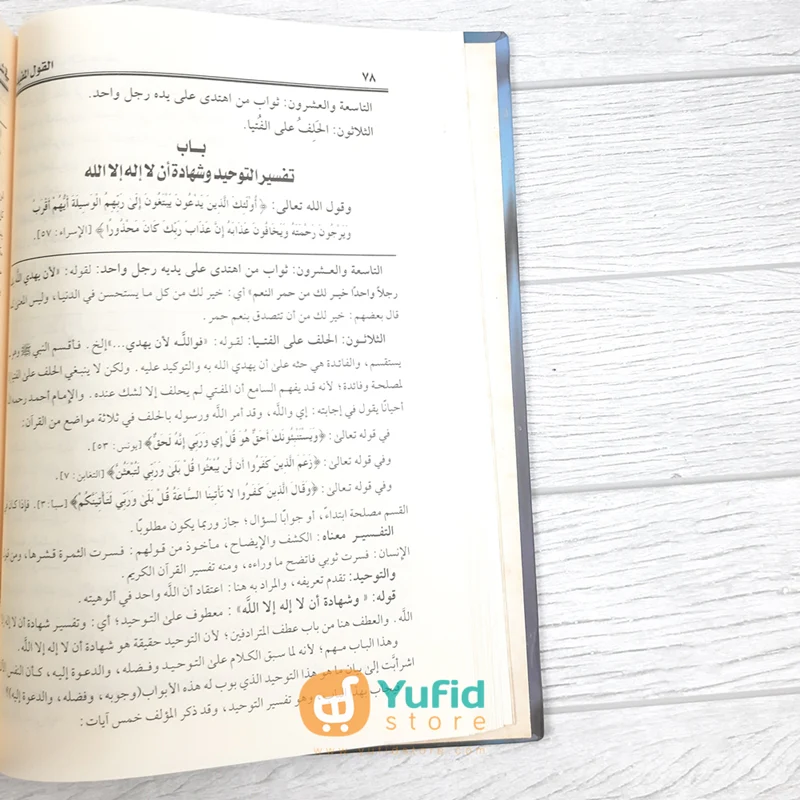 ٧٨
القول المفيد
التاسعة والعشرون: ثواب من اهتدى على يده رجل واحد.
الثلاثون: الحَلِفُ على الفُتيا.
بــاب
تفسير التوحيد وشهادة أن لا إله إلا الله
وقول الله تعالى: ﴿أُولَئِكَ الَّذِينَ يَدْعُونَ يَبْتَغُونَ إِلَى رَبِّهِمُ الْوَسِيلَةَ أَيُّهُمْ أَقْرَبُ
وَيَرْجُونَ رَحْمَتَهُ وَيَخَافُونَ عَذَابَهُ إِنَّ عَذَابَ رَبِّكَ كَانَ مَحْذُورًا﴾ [الإسراء: ٥٧].
التاسعة والعـشرون: ثواب من اهتدى على يديه رجل واحد: لقوله: «لأن يهدي اللَّه
رجلاً واحدًا خيـر لك من حمر النعم» أي: خير لك من كل ما يستحسن في الدنيا، وليس المعنى
قال بعضهم: خير لك من أن تتصدق بنعم حمر.
الثلاثـون: الحلف على الفتـيا: لقوله: «فواللَّـه لأن يهدي...»إلخ. فـأقسم النبي ﷺ وهو
يستقسم، والفائدة هي حثه على أن يهدي الله به والتوكيد عليه. ولكن لا ينبغي الحلف على الفتيا
لمصلحة وفائدة؛ لأنه قد يفهم السامع أن المفتي لم يحلف إلا لشك عنده. والإمام أحمد رحمه
أحيانًا يقول في إجابته: إي واللَّه، وقد أمر اللَّه ورسوله بالحلف في ثلاثة مواضع من القرآن:
في قوله تعالى: ﴿وَيَسْتَنْبِئُونَكَ أَحَقٌّ هُوَ قُلْ إِي وَرَبِّي إِنَّهُ لَحَقٌّ﴾ [يونس: ٥٣].
وفي قوله تعالى: ﴿زَعَمَ الَّذِينَ كَفَرُوا أَن لَّن يُبْعَثُوا قُلْ بَلَى وَرَبِّي لَتُبْعَثُنَّ﴾ [التغابن: ٧].
وفي قوله تـعالى: ﴿وَقَالَ الَّذِينَ كَفَرُوا لا تَأْتِينَا السَّاعَةُ قُلْ بَلَى وَرَبِّي لَتَأْتِيَنَّكُمْ﴾ [سبأ: ٣]. فإذا كان
القسم مصلحة ابتداءً، أو جوابًا لسؤال؛ جاز وربما يكون مطلوبًا.
التفسـيـر معناه: الكشف والإيضاح، مـأخـوذ من قولهم: فـسـرت الثمـرة قشرها، ومن
الإنسان: فسرت ثوبي فاتضح ما وراءه، ومنه تفسير القرآن الكريم.
والتوحيد: تقدم تعريفه، والمراد به هنا: اعتقاد أن اللَّه واحد في ألوهيته.
قوله: «وشهادة أن لا إله إلا اللَّه»: معطوف على التوحيد؛ أي: وتفسير شهادة أن لا إله
اللَّه. والعطف هنا من باب عطف المترادفين؛ لأن التوحيد حقيقة هو شهادة أن لا إله إلا اللَّه.
وهذا البـاب مـهم؛ لأنه لما سبق الكلام على التوحيد وفضله، والدعوة إليه، كـأن النفس
اشرأبَّت إلى بيان ما هو هذا التوحيد الذي بوب له هذه الأبواب(وجوبه، وفضله، والدعوة إليه)
وهو تفسير التوحيد، وقد ذكر المؤلف خمس آيات:
Yufid
store